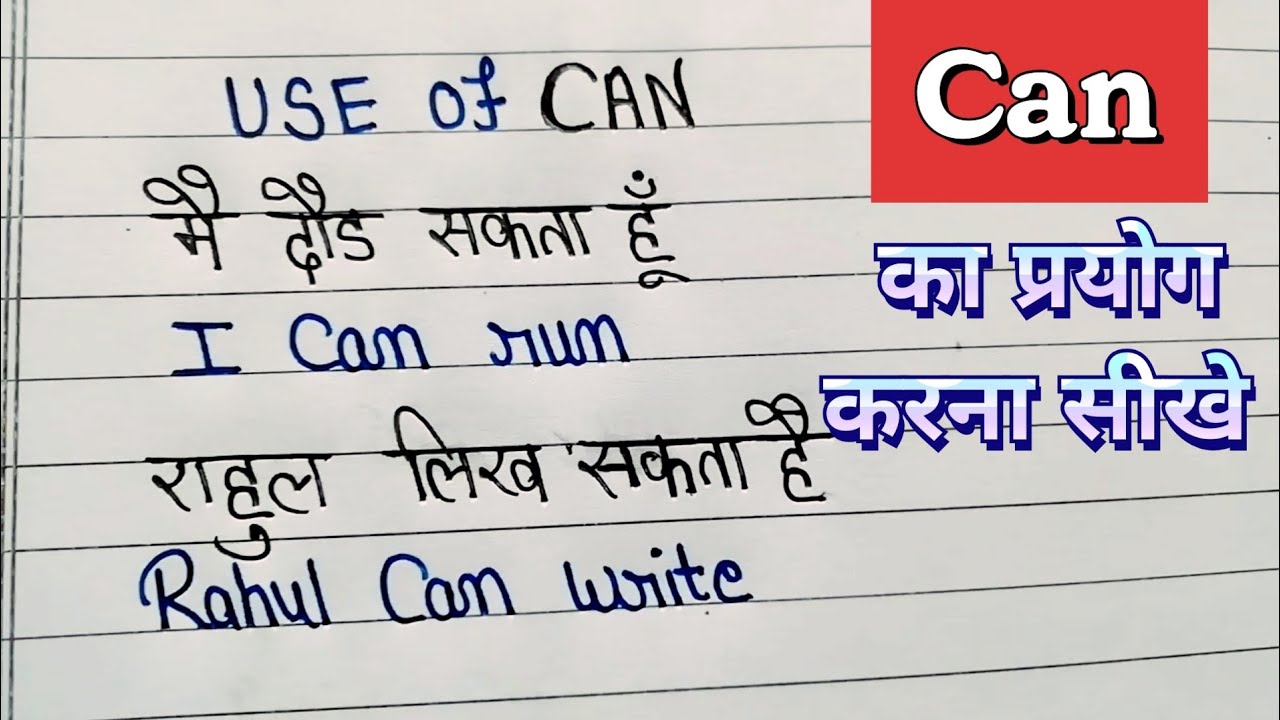 USE Of CAN
मै दौड सकता हूँ
I Can run
राहुल लिख सकता है
Rahul Can write
Can
का प्रयोग
करना सीखे